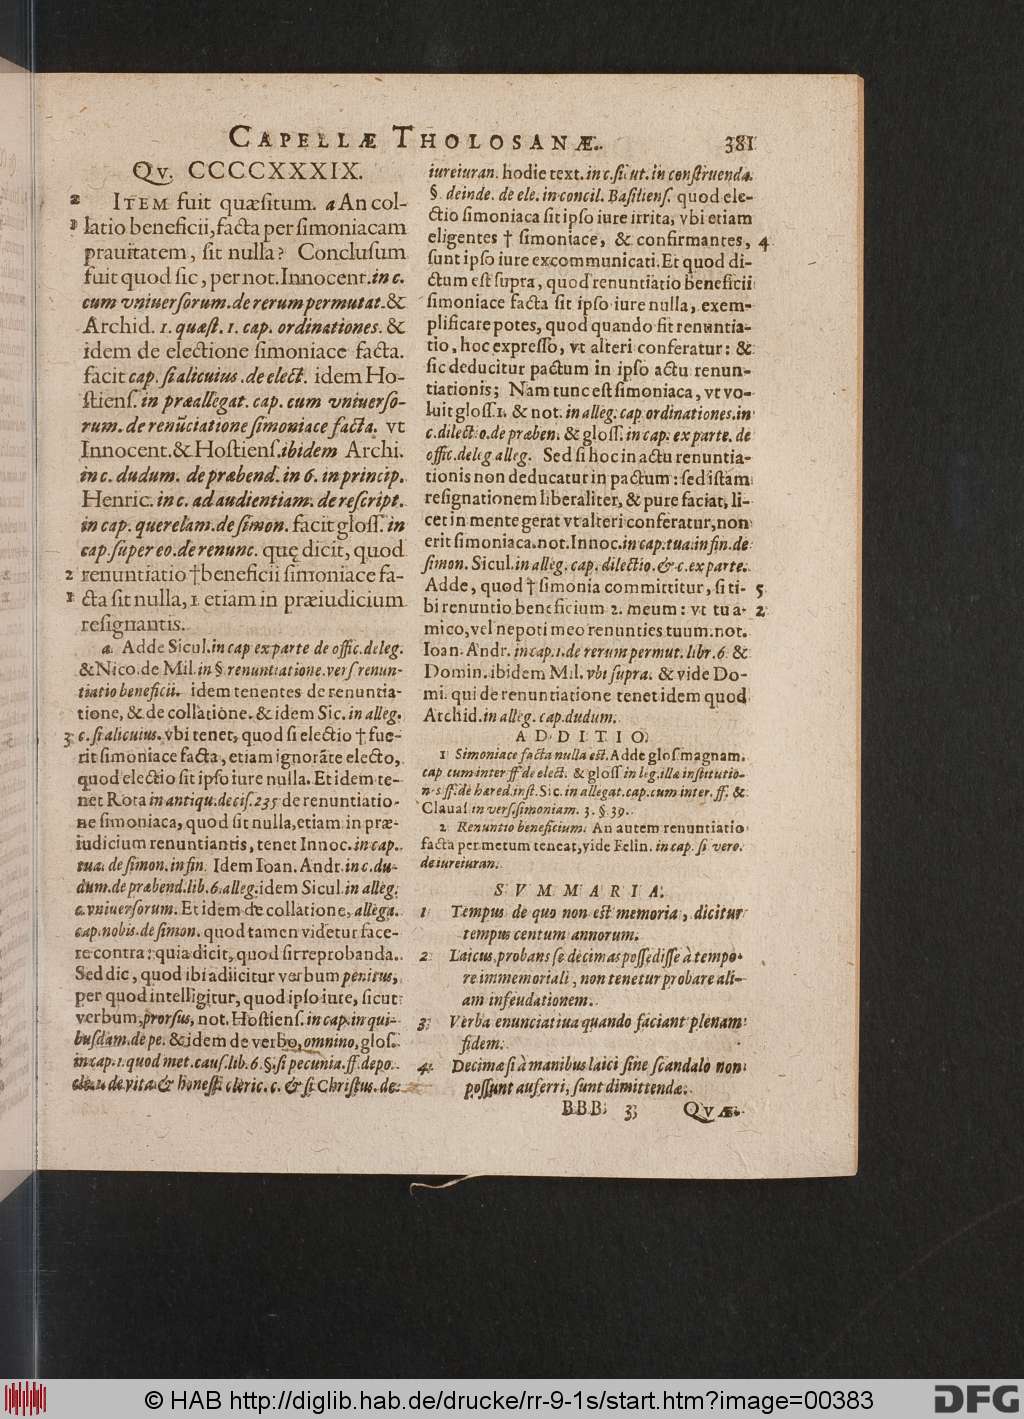 CAPELLÆ THOLOSANÆ. 381
Qv. CCCCXXXIX.
2 ITEM fuit quæsitum. a An col-
1 latio beneficii, facta per simoniacam
prauitatem, sit nulla? Conclusum
fuit quod sic, per not. Innocent. in c.
cum vniuersorum. de rerum permutat. &
Archid. 1. quæst. 1. cap. ordinationes. &
idem de electione simoniace facta.
facit cap. si alicuius. de elect. idem Ho-
stiens. in præallegat. cap. cum vniuerso-
rum. de renūciatione simoniace facta. vt
Innocent. & Hostiens. ibidem Archi.
in c. dudum. de præbend. in 6. in princip.
Henric. in c. ad audientiam. de rescript.
in cap. querelam. de simon. facit gloss. in
cap. super eo. de renunc. quę dicit, quod
2 renuntiatio † beneficii simoniace fa-
1 cta sit nulla, 1 etiam in præiudicium
resignantis.
a. Adde Sicul. in cap ex parte de offic. deleg.
& Nico. de Mil. in §. renuntiatione. vers renun-
tiatio beneficii. idem tenentes de renuntia-
tione, & de collatione. & idem Sic. in alleg.
3 c. si alicuius. vbi tenet, quod si electio † fue-
rit simoniace facta, etiam ignorāte electo,
quod electio sit ipso iure nulla. Et idem te-
net Rota in antiqu. decis. 235 de renuntiatio-
ne simoniaca, quod sit nulla, etiam in præ-
iudicium renuntiantis, tenet Innoc. in cap.
tua. de simon. in fin. Idem Ioan. Andr. in c. du-
dum. de præbend. lib. 6. alleg. idem Sicul. in alleg.
c. vniuersorum. Et idem de collatione, allega.
cap. nobis. de simon. quod tamen videtur face-
re contra: quia dicit, quod sit reprobanda.
Sed dic, quod ibi adiicitur verbum penitus,
per quod intelligitur, quod ipso iure, sicut
verbum, prorsus, not. Hostiens. in cap. in qui-
busdam. de pe. & idem de verbo, omnino, glos.
in cap. 1. quod met. caus. lib. 6. §. si pecunia. ff. depo.
de vita & honest. cleric. c. & si Christus. de
iureiuran. hodie text. in c. sicut. in construenda.
§. deinde. de ele. in concil. Basiliens. quod ele-
ctio simoniaca sit ipso iure irrita, vbi etiam
eligentes † simoniace, & confirmantes, 4
sunt ipso iure excommunicati. Et quod di-
ctum est supra, quod renuntiatio beneficii
simoniace facta sit ipso iure nulla, exem-
plificare potes, quod quando fit renuntia-
tio, hoc expresso, vt alteri conferatur: &
sic deducitur pactum in ipso actu renun-
tiationis; Nam tunc est simoniaca, vt vo-
luit gloss. 1. & not. in alleg. cap. ordinationes. in
c. dilectio. de præben. & gloss. in cap. ex parte. de
offic. deleg alleg. Sed si hoc in actu renuntia-
tionis non deducatur in pactum: sed istam
resignationem liberaliter, & pure faciat, li-
cet in mente gerat vt alteri conferatur, non
erit simoniaca. not. Innoc. in cap. tua. in fin. de
simon. Sicul. in alleg. cap. dilectio. & c. ex parte.
Adde, quod † simonia committitur, si ti- 5
bi renuntio beneficium 2. meum: vt tu a- 2
mico, vel nepoti meo renunties tuum. not.
Ioan. Andr. in cap. 1. de rerum permut. libr. 6. &
Domin. ibidem Mil. vbi supra. & vide Do-
mi. qui de renuntiatione tenet idem quod
Archid. in alleg. cap. dudum.
ADDITIO.
1 Simoniace facta nulla est. Adde glos. magnam.
cap. cum inter ff de elect. & gloss in leg. illa institutio-
n s ff. de hæred. inst. Sic. in allegat. cap. cum inter. ff. &
Clauas in vers. simoniam. 3. §. 39.
2 Renuntio beneficium. An autem renuntiatio
facta per metum teneat, vide Felin. in cap. si vero.
de iureiuran.
SVMMARIA.
1 Tempus de quo non est memoria, dicitur
tempus centum annorum.
2 Laicus probans se decimas possedisse à tempo-
re immemoriali, non tenetur probare ali-
am infeudationem.
3 Verba enunciatiua quando faciant plenam
fidem.
4 Decimæ si à manibus laici sine scandalo non
possunt auferri, sunt dimittendæ.
BBB 3 QVÆ.
© HAB http://diglib.hab.de/drucke/rr-9-1s/start.htm?image=00383
DFG